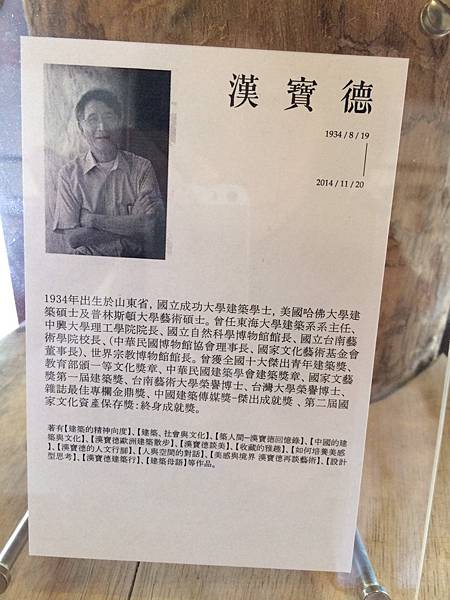 漢寶德
1934 / 8 / 19
2014 / 11 / 20
1934年出生於山東省，國立成功大學建築學士，美國哈佛大學建
築碩士及普林斯頓大學藝術碩士。曾任東海大學建築系系主任、
中興大學理工學院院長、國立自然科學博物館館長、國立台南藝
術學院校長、(中華民國博物館協會理事長、國家文化藝術基金會
董事長)、世界宗教博物館館長。曾獲全國十大傑出青年建築獎、
教育部頒一等文化獎章、中華民國建築學會建築獎章、國家文藝
獎第一屆建築獎、台南藝術大學榮譽博士、台灣大學榮譽博士、
雜誌最佳專欄金鼎獎、中國建築傳媒獎-傑出成就獎、第二屆國
家文化資產保存獎:終身成就獎。
著有【建築的精神向度】、【建築、社會與文化】、【築人間—漢寶德回憶錄】、【中國的建
築與文化】、【漢寶德歐洲建築散步】、【漢寶德談美】、【收藏的雅趣】、【如何培養美感
】、【漢寶德的人文行腳】、【人與空間的對話】、【美感與境界 漢寶德再談藝術】、【設計
型思考】、【漢寶德建築行】、【建築母語】等作品。